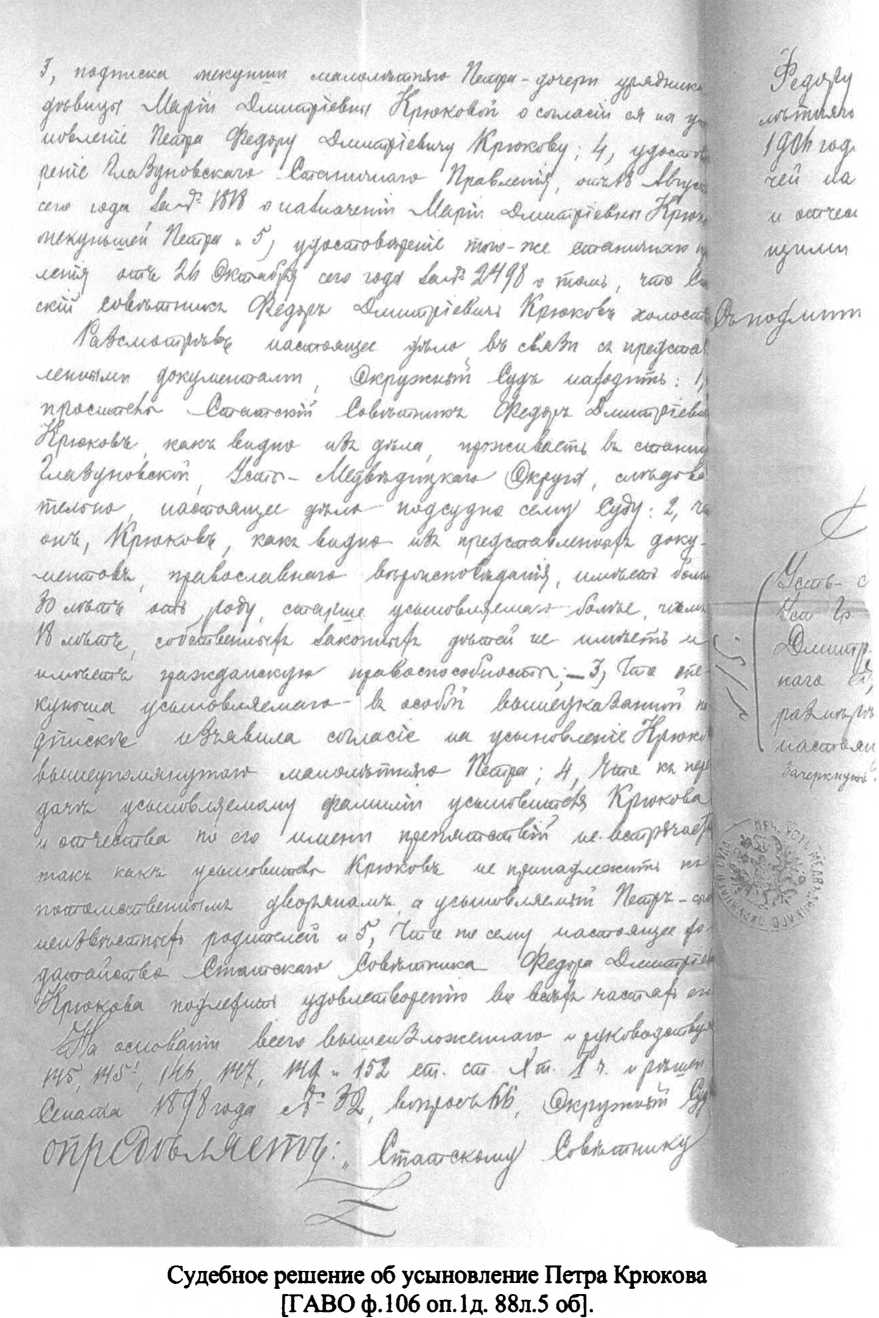 3, подписка опекунши малолѣтняго Петра - дочери урядника
дѣвицы Маріи Дмитріевны Крюковой о согласіи ея на
новленіе Петра Федору Дмитріевичу Крюкову; 4, удостовѣ
реніе Глазуновскаго Станичнаго Правленія, отъ Август
сего года за № 1818 о назначеніи Маріи Дмитріевны Крюк
опекуншей Петра и 5, удостовѣреніе того-же станичнаго
ленія отъ 26 Октября сего года за № 2498 о томъ, что
скій совѣтникъ Федоръ Дмитріевичъ Крюковъ холостъ
Разсмотрѣвъ настоящее дѣло, въ связи съ предста
ленными документами, Окружный Судъ находитъ: 1,
проситель Статскій Совѣтникъ Федоръ Дмитріеви
Крюковъ, какъ видно изъ дѣла, проживаетъ въ станиц
Глазуновской, Усть-Медвѣдицкаго Округа, слѣдова
тельно, настоящее дѣло подсудно сему Суду: 2, что
онъ, Крюковъ, какъ видно изъ представленныхъ доку-
ментовъ, православнаго вѣроисповѣданія, имѣетъ болѣе
30 лѣтъ отъ роду, старше усыновляемаго болѣе, чѣмъ
18 лѣтъ, собственныхъ законныхъ дѣтей не имѣетъ и
имѣетъ гражданскую правоспособность; - 3, Что опе
кунша усыновляемаго въ особой вышеуказанной по
дпискѣ изъявила согласіе на усыновленіе Крюко
вышеупомянутаго малолѣтняго Петра; 4, Что къ пере
дачѣ усыновляемому фамиліи усыновителя Крюкова
и отчества по его имени препятствій не встрѣчаетъ
такъ какъ усыновитель Крюковъ не принадлежитъ къ
потомственнымъ дворянамъ, а усыновляемый Петръ - сынъ
неизвѣстныхъ родителей и 5, Что по сему настоящее хо
датайство Статскаго Совѣтника Федора Дмитріев
Крюкова подлежитъ удовлетворенію во всѣхъ частяхъ его
На основаніи всего вышеизложеннаго и руководствуя
145, 145¹, 146, 147, 149 и 152 ст. ст. X т. I ч. и рѣшен
Сената 1898 года № 32, вопросъ 66, Окружный Суд
опредѣляетъ: „Статскому Совѣтнику
Федору
лѣтняго
190 год
чей на
и отчес
ицами
Въ подлин
Усть-
Дмитр
наго
размѣръ
настоящ
Зачеркнуто
Судебное решение об усыновление Петра Крюкова
[ГАВО ф.106 оп.1д. 88л.5 об].